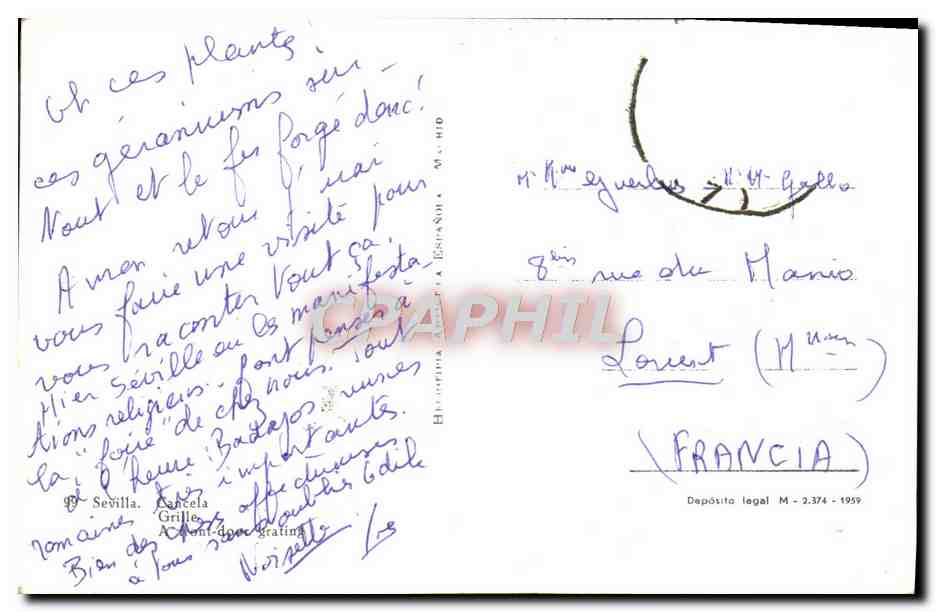 Et ces plantes!
ces géraniums sur-
tout et le fer forgé donc!
A mon retour j'irai
vous faire une visite pour
vous raconter tout ça.
Hier Séville où les manifesta-
tions religieuses font penser à
la "foire" de chez nous. Tout
à l'heure: Badajos ruines
romaines très importantes.
Bien des choses affectueuses
à tous sans oublier Odile
Noisette
99 Sevilla. Cancela
Grille
A front-door grating
HELIOTIPIA ARTISTICA ESPAÑOLA - MADRID
CPAPHIL
Mr Mme
8 bis rue du Manio
Lorient
(FRANCIA)
Depósito legal M - 2.374 - 1959